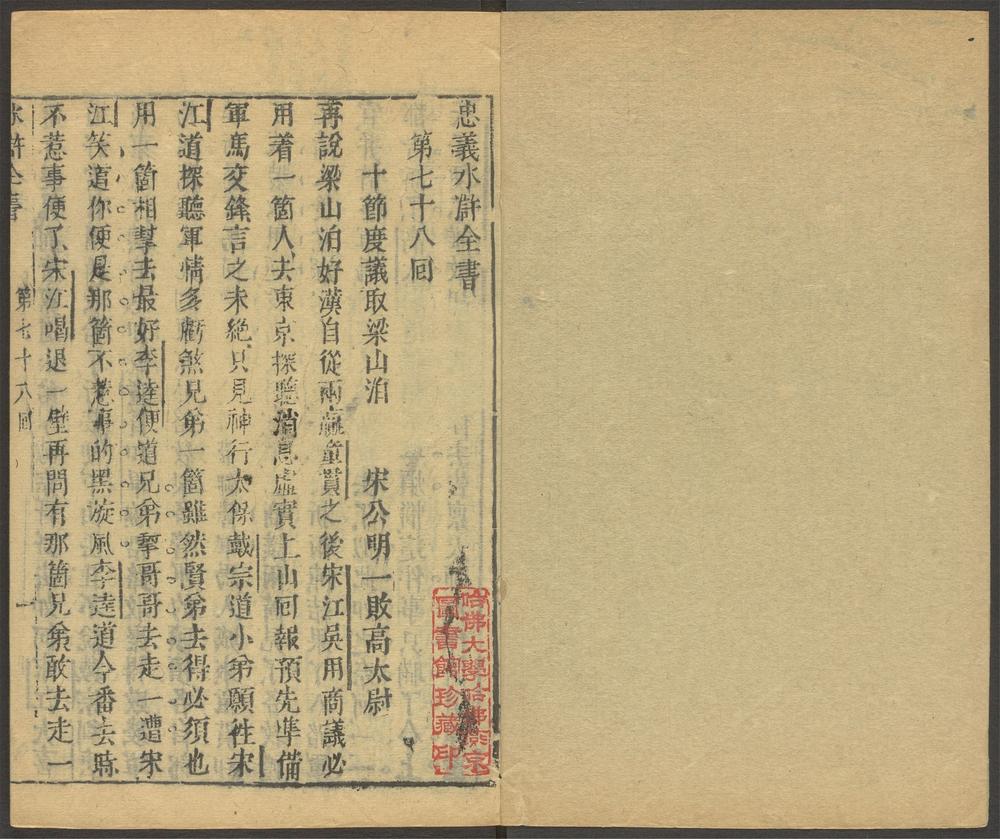 忠義水滸全書
第七十八回
十節度議取梁山泊　宋公明一敗高太尉
再說梁山泊好漢自從兩贏童貫之後宋江吳用商議必
用着一箇人去東京探聽消息虛實上山回報預先準備
軍馬交鋒言之未絕只見神行太保戴宗道小弟願往宋
江道探聽軍情多虧煞兄弟一箇雖然賢弟去得必須也
用一箇相幫去最好李逵便道兄弟幫哥哥去走一遭宋
江笑道你便是那箇不惹事的黑旋風李逵道今番去時
不惹事便了宋江喝退一壁再問有那箇兄弟敢去走一
水滸全書　第七十八回　一
哈佛大學哈佛燕京
圖書館珍藏印